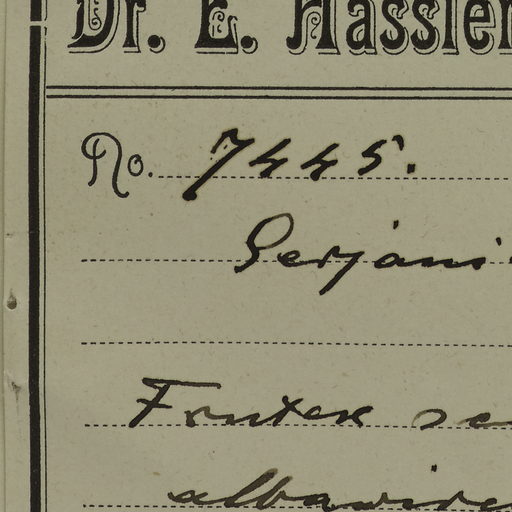 Dr. E. Hassler
No. 7445.
Serjani
Frutex sc
albavire